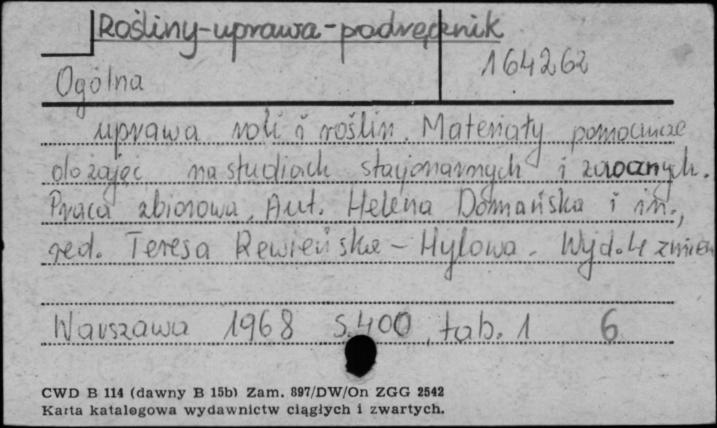 Rośliny-uprawa-podręcznik
164262
Ogólna
uprawa roli i roślin. Materiały pomocnicze
do zajęć na studiach stacjonarnych i zaocznych.
Praca zbiorowa. Aut. Helena Domańska i in.,
red. Teresa Rewieńska-Hylowa. Wyd. 4 zmien
Warszawa 1968 s. 400, tab. 1 6
CWD B 114 (dawny B 15b) Zam. 897/DW/On ZGG 2542
Karta katalogowa wydawnictw ciągłych i zwartych.